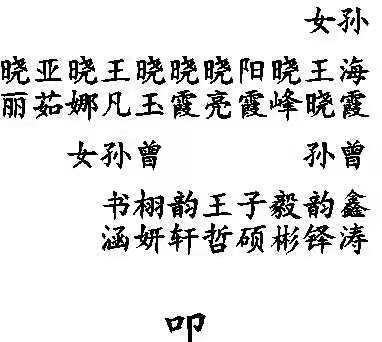 孙女
海霞
王晓
晓峰
阳霞
晓亮
晓霞
晓玉
王凡
晓娜
亚茹
晓丽
曾孙
曾孙女
鑫涛
韵铎
毅彬
子硕
王哲
韵轩
栩妍
书涵
叩